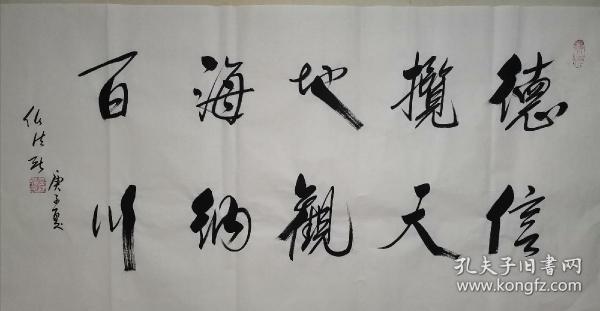 德信
攬天
地觀
海納
百川
庚子夏
孔夫子旧書网
www.kongfz.com